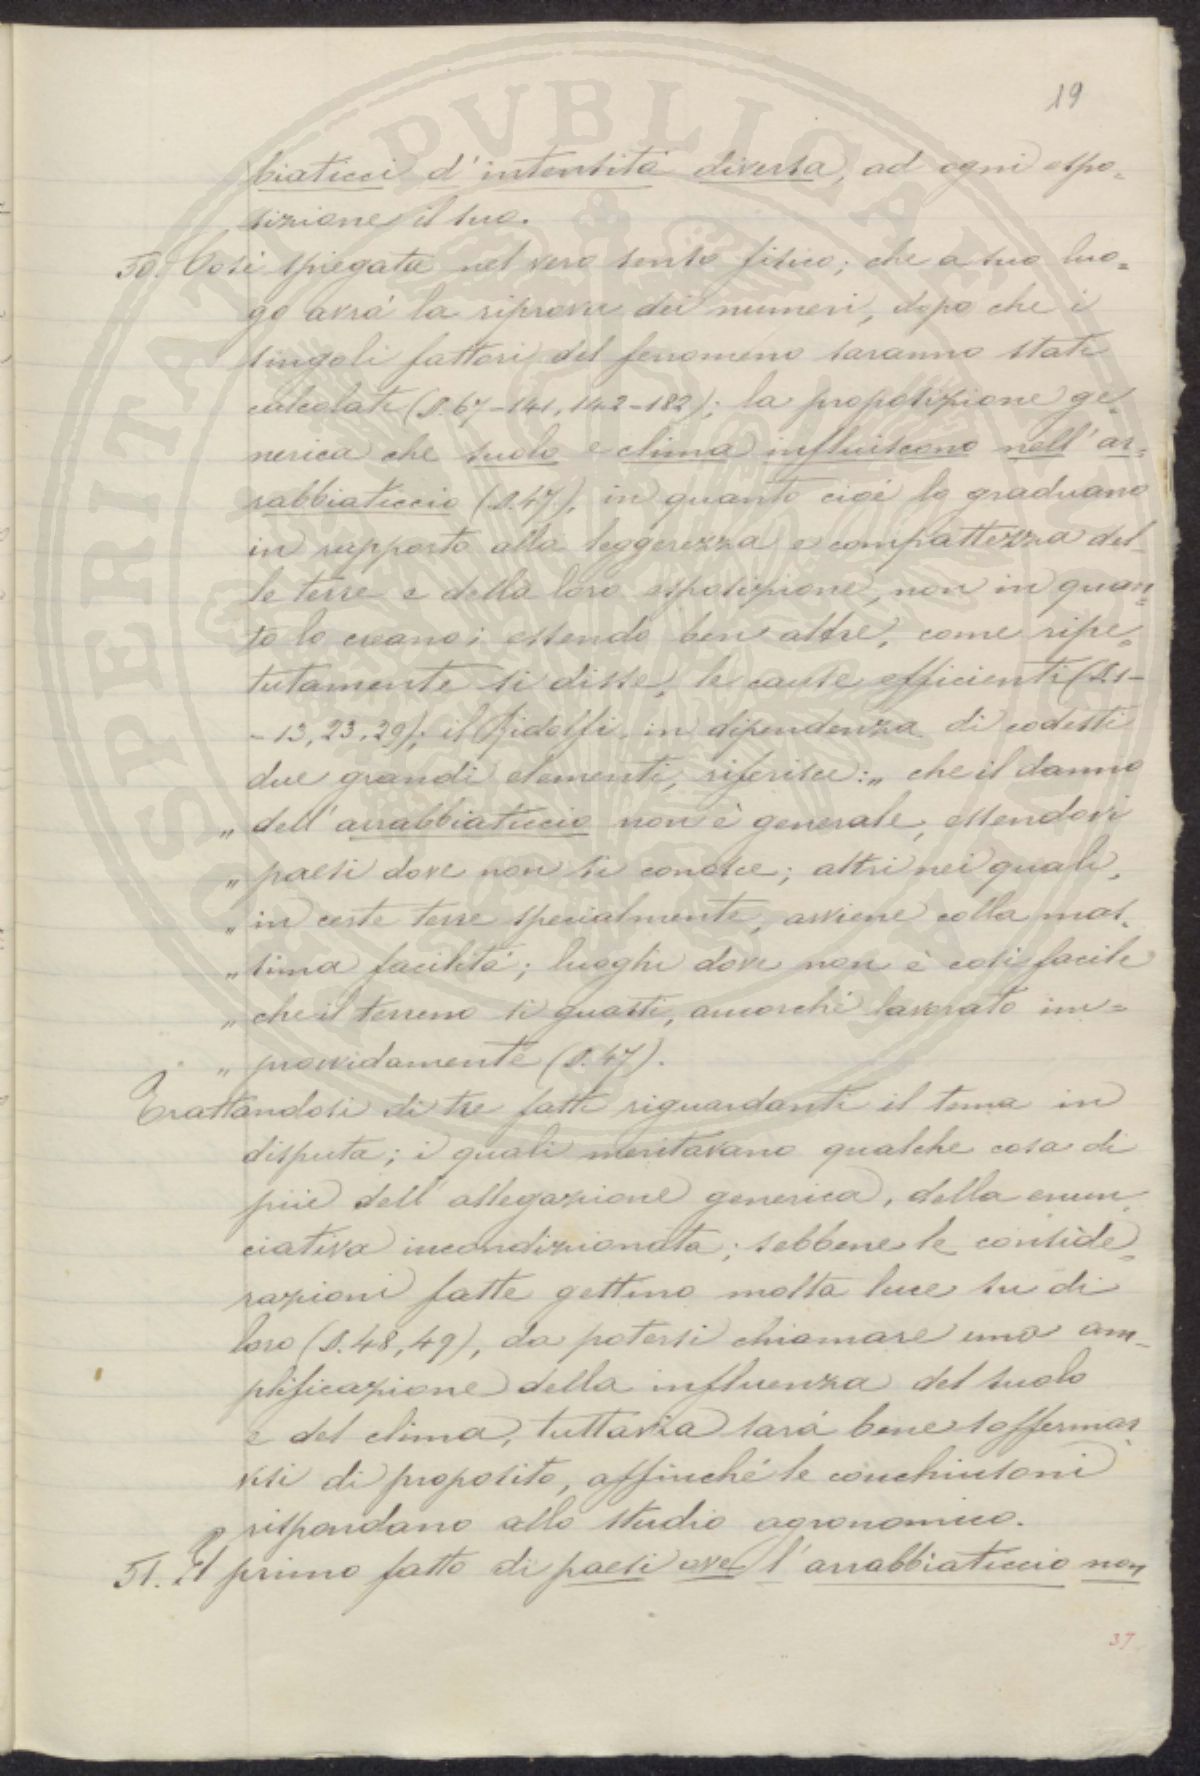 19
biaticci d'intensità diversa, ad ogni espo=
sizione il suo.
50. Così spiegata nel vero senso fisico; che a suo luo=
go avrà la riprova dei numeri, dopo che i
singoli fattori del fenomeno saranno stati
calcolati (S. 67-141, 142-182); la proposizione ge=
nerica che suolo e clima influiscono nell'ar=
rabbiaticcio (S. 47), in quanto cioè lo graduano
in rapporto alla leggerezza e compattezza del-
le terre e della loro esposizione, non in quan=
to lo creano; essendo ben altre, come ripe=
tutamente si disse, le cause efficienti (S. 1-
-13, 23, 29); il Ridolfi, in dipendenza di codesti
due grandi elementi, riferisce: „ che il danno
„ dell'arrabbiaticcio non è generale, essendovi
„ paesi dove non si conosce; altri nei quali,
„ in certe terre specialmente, avviene colla mas=
„ sima facilità; luoghi dove non è così facile
„ che il terreno si guasti, ancorchè lavorato im=
„ provvidamente (S. 47).
Trattandosi di tre fatti riguardanti il tema in
disputa; i quali meritavano qualche cosa di
più dell'allegazione generica, della enun=
ciativa incondizionata; sebbene le conside=
razioni fatte gettino molta luce su di
loro (S. 48, 49), da potersi chiamare una am-
plificazione della influenza del suolo
e del clima, tuttavia sarà bene soffermar
visi di proposito, affinchè le conchiusioni
rispondano allo studio agronomico.
51. Il primo fatto di paesi ove l'arrabbiaticcio non
37
SOSPERITATI PVBLICAE